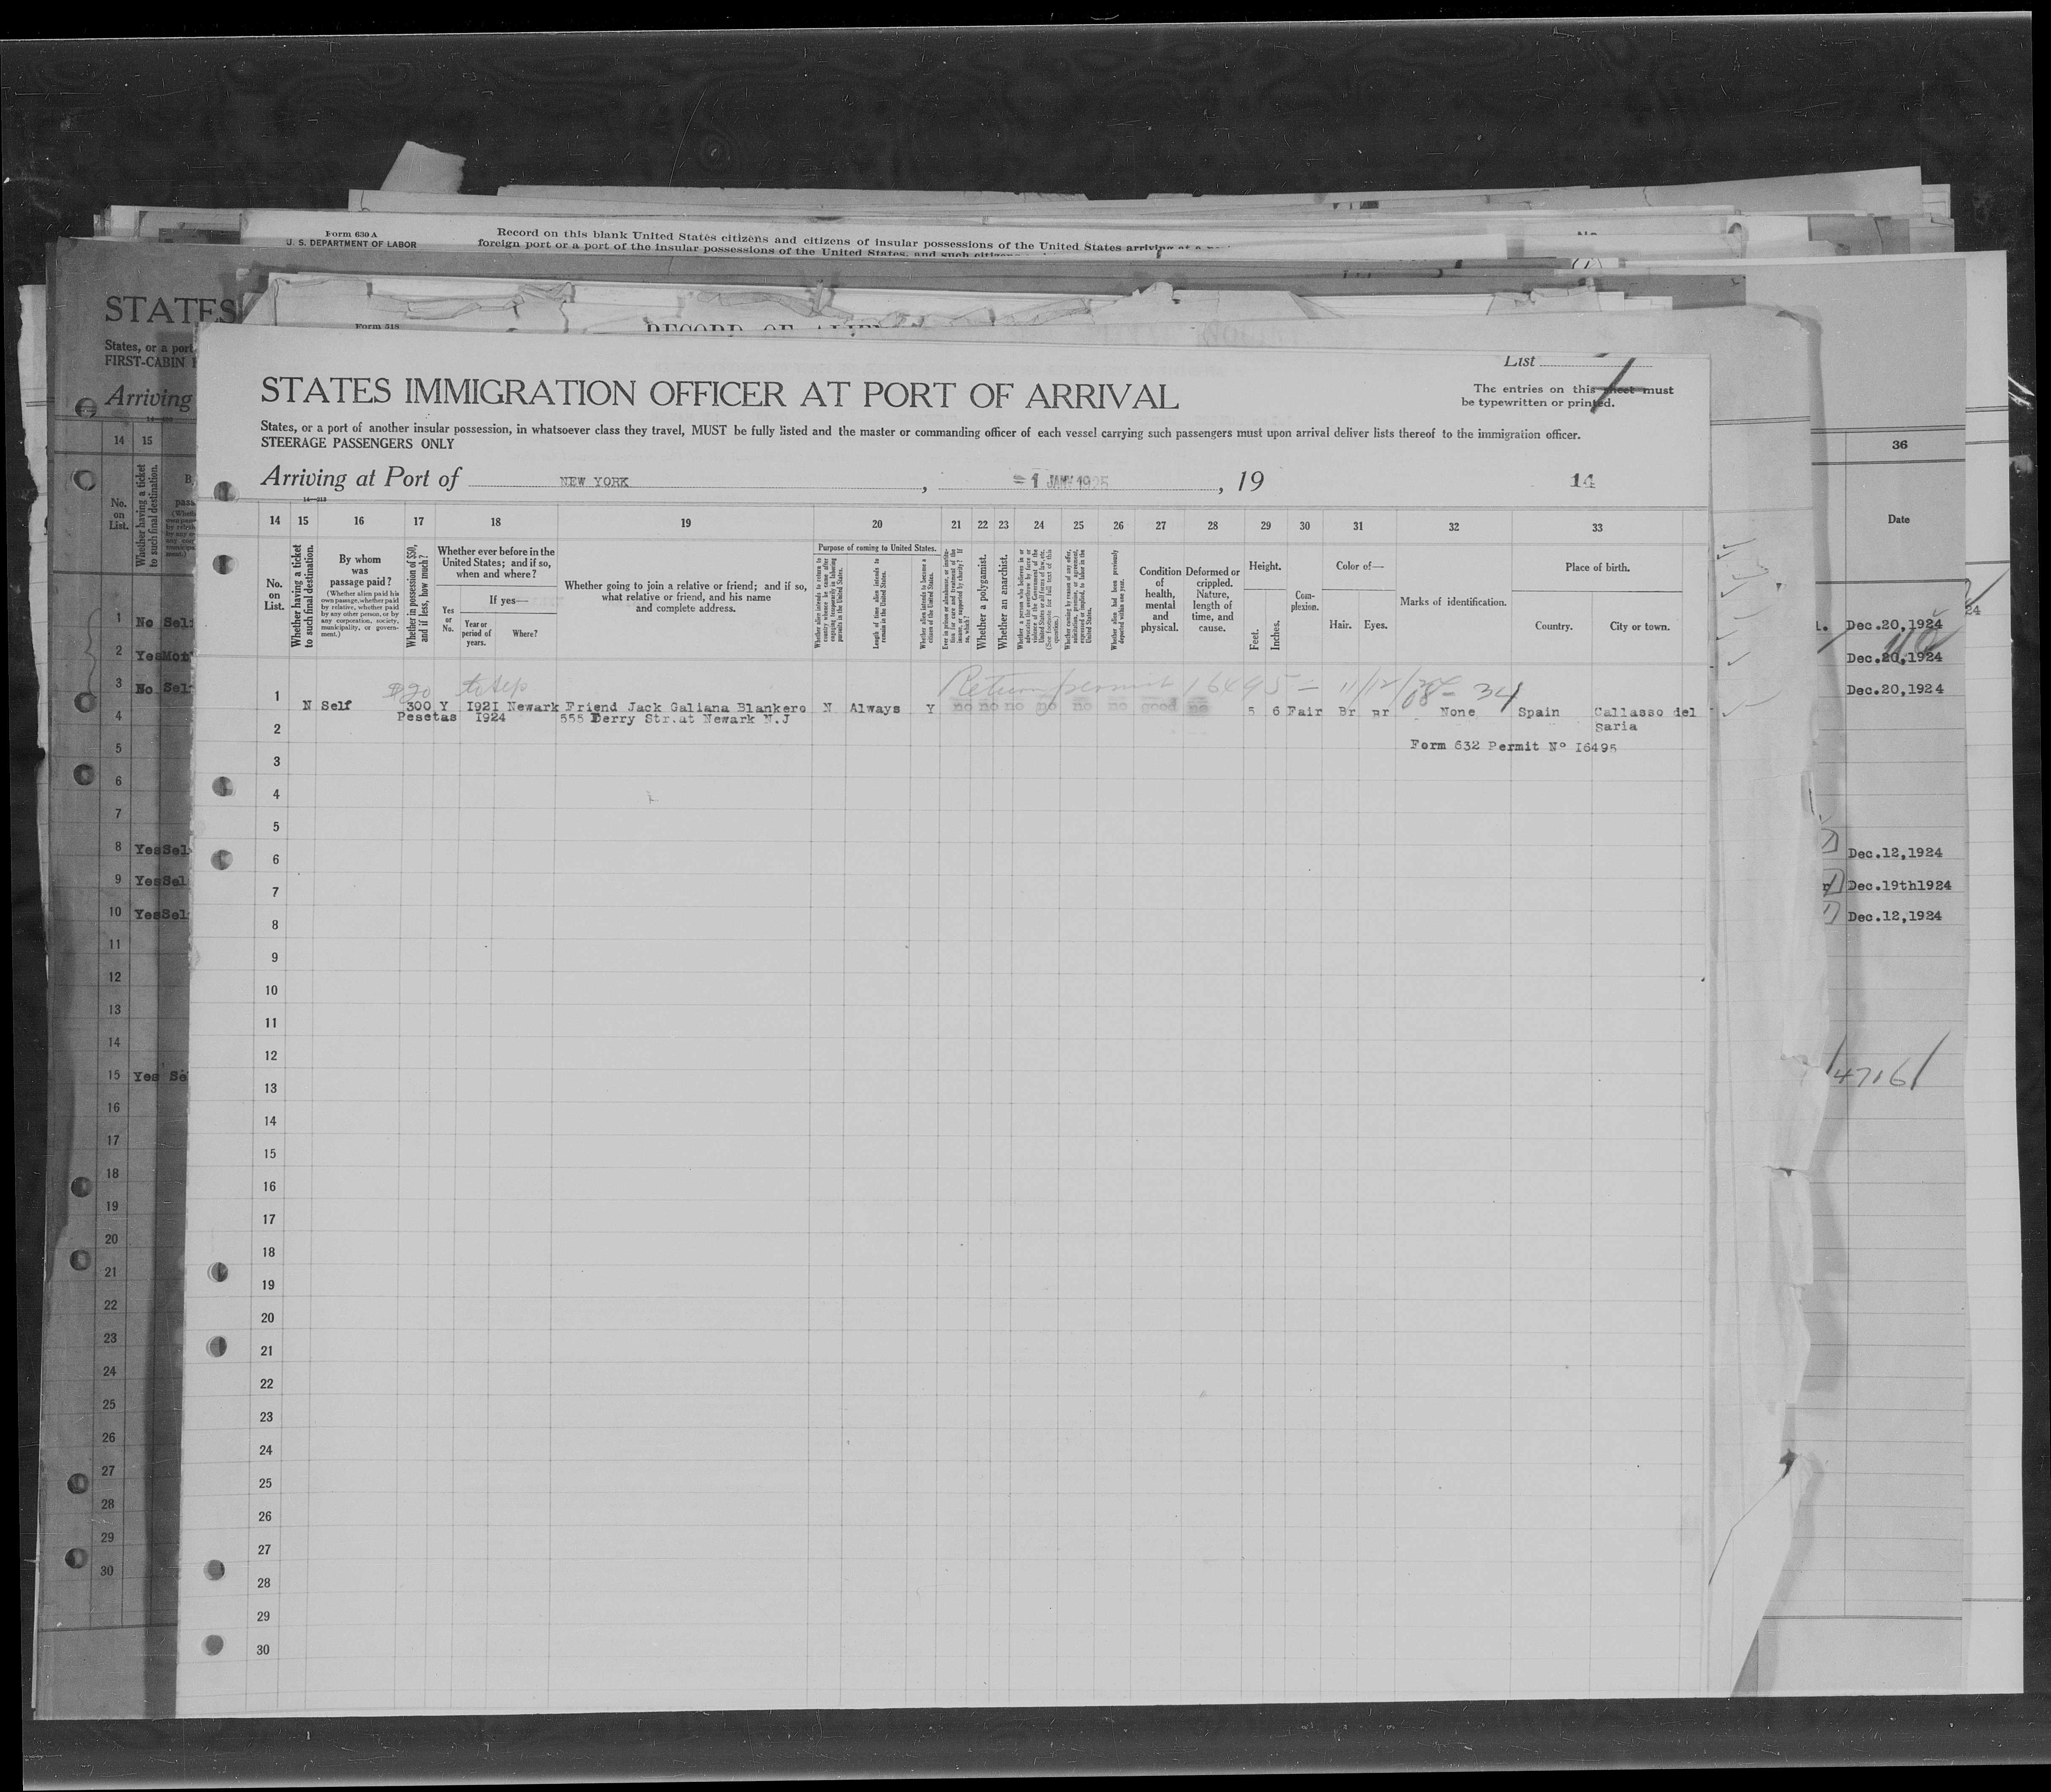 Form 630 A
U. S. DEPARTMENT OF LABOR
Record on this blank United States citizens and citizens of insular possessions of the United States arriving at a
foreign port or a port of the insular possessions of the United States, and such
STATES
States, or a port
FIRST-CABIN
Arriving
Form 518
RECORD OF ALIEN
List
STATES IMMIGRATION OFFICER AT PORT OF ARRIVAL
The entries on this sheet must
be typewritten or printed.
States, or a port of another insular possession, in whatsoever class they travel, MUST be fully listed and the master or commanding officer of each vessel carrying such passengers must upon arrival deliver lists thereof to the immigration officer.
STEERAGE PASSENGERS ONLY
Arriving at Port of NEW YORK, 1 JANY 1925, 19
14
14—213
14 15 16 17 18 19 20 21 22 23 24 25 26 27 28 29 30 31 32 33
No. on List.
Whether having a ticket to such final destination.
By whom was passage paid?
(Whether alien paid his own passage, whether paid by relative, whether paid by any other person, or by any corporation, society, municipality, or government.)
Whether in possession of $50, and if less, how much?
Whether ever before in the United States; and if so, when and where?
Yes or No.
If yes—
Year or period of years.
Where?
Whether going to join a relative or friend; and if so, what relative or friend, and his name and complete address.
Purpose of coming to United States.
Whether alien intends to return to country whence he came after engaging temporarily in laboring pursuits in the United States.
Length of time alien intends to remain in the United States.
Whether alien intends to become a citizen of the United States.
Ever in prison or almshouse, or institution for care and treatment of the insane, or supported by charity? If so, which?
Whether a polygamist.
Whether an anarchist.
Whether a person who believes in or advocates the overthrow by force or violence of the Government of the United States or all forms of law, etc. (See footnote for full text of this question.)
Whether coming by reason of any offer, solicitation, promise, or agreement, expressed or implied, to labor in the United States.
Whether alien had been previously deported within one year.
Condition of health, mental and physical.
Deformed or crippled. Nature, length of time, and cause.
Height.
Feet.
Inches.
Complexion.
Color of—
Hair.
Eyes.
Marks of identification.
Place of birth.
Country.
City or town.
$20 to Sep Return permit 16495 — 11/12/24
08- 34
1 N Self 300 Y I92I Newark Friend Jack Galiana Blankero N Always Y no no no no no no good no 5 6 Fair Br Br None Spain Callasso del
Pesetas I924 555 Ferry Str.at Newark N.J Saria
2
Form 632 Permit Nº I6495
3
4
5
6
7
8
9
10
11
12
13
14
15
16
17
18
19
20
21
22
23
24
25
26
27
28
29
30
14 15
No. on List.
Whether having a ticket to such final destination.
1 No Self
2 Yes Mot
3 No Self
4
5
6
7
8 Yes Sel
9 Yes Sel
10 Yes Sel
11
12
13
14
15 Yes Se
16
17
18
19
20
21
22
23
24
25
26
27
28
29
30
36
Date
Dec.20,1924
Dec.20,1924
Dec.20,1924
Dec.12,1924
Dec.19th1924
Dec.12,1924
4716